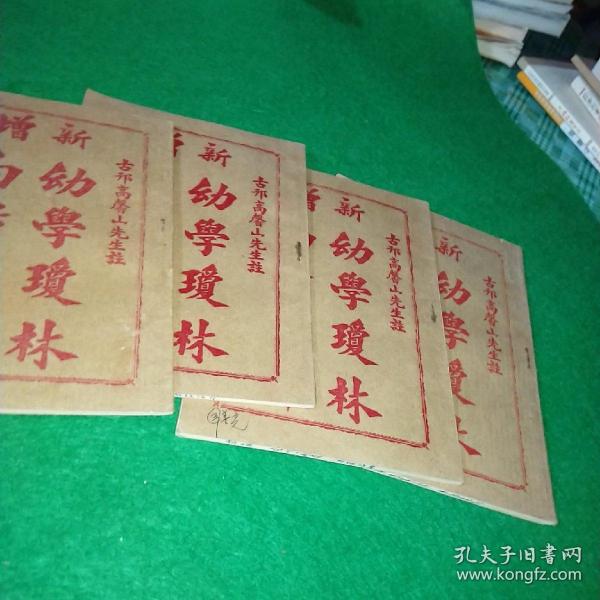 增
新
幼學瓊林
古邗高馨山先生註
新
幼學瓊林
古邗高馨山先生註
新
幼學瓊林
古邗高馨山先生註
新
幼學瓊林
古邗高馨山先生註
孔夫子旧书网
www.kongfz.com